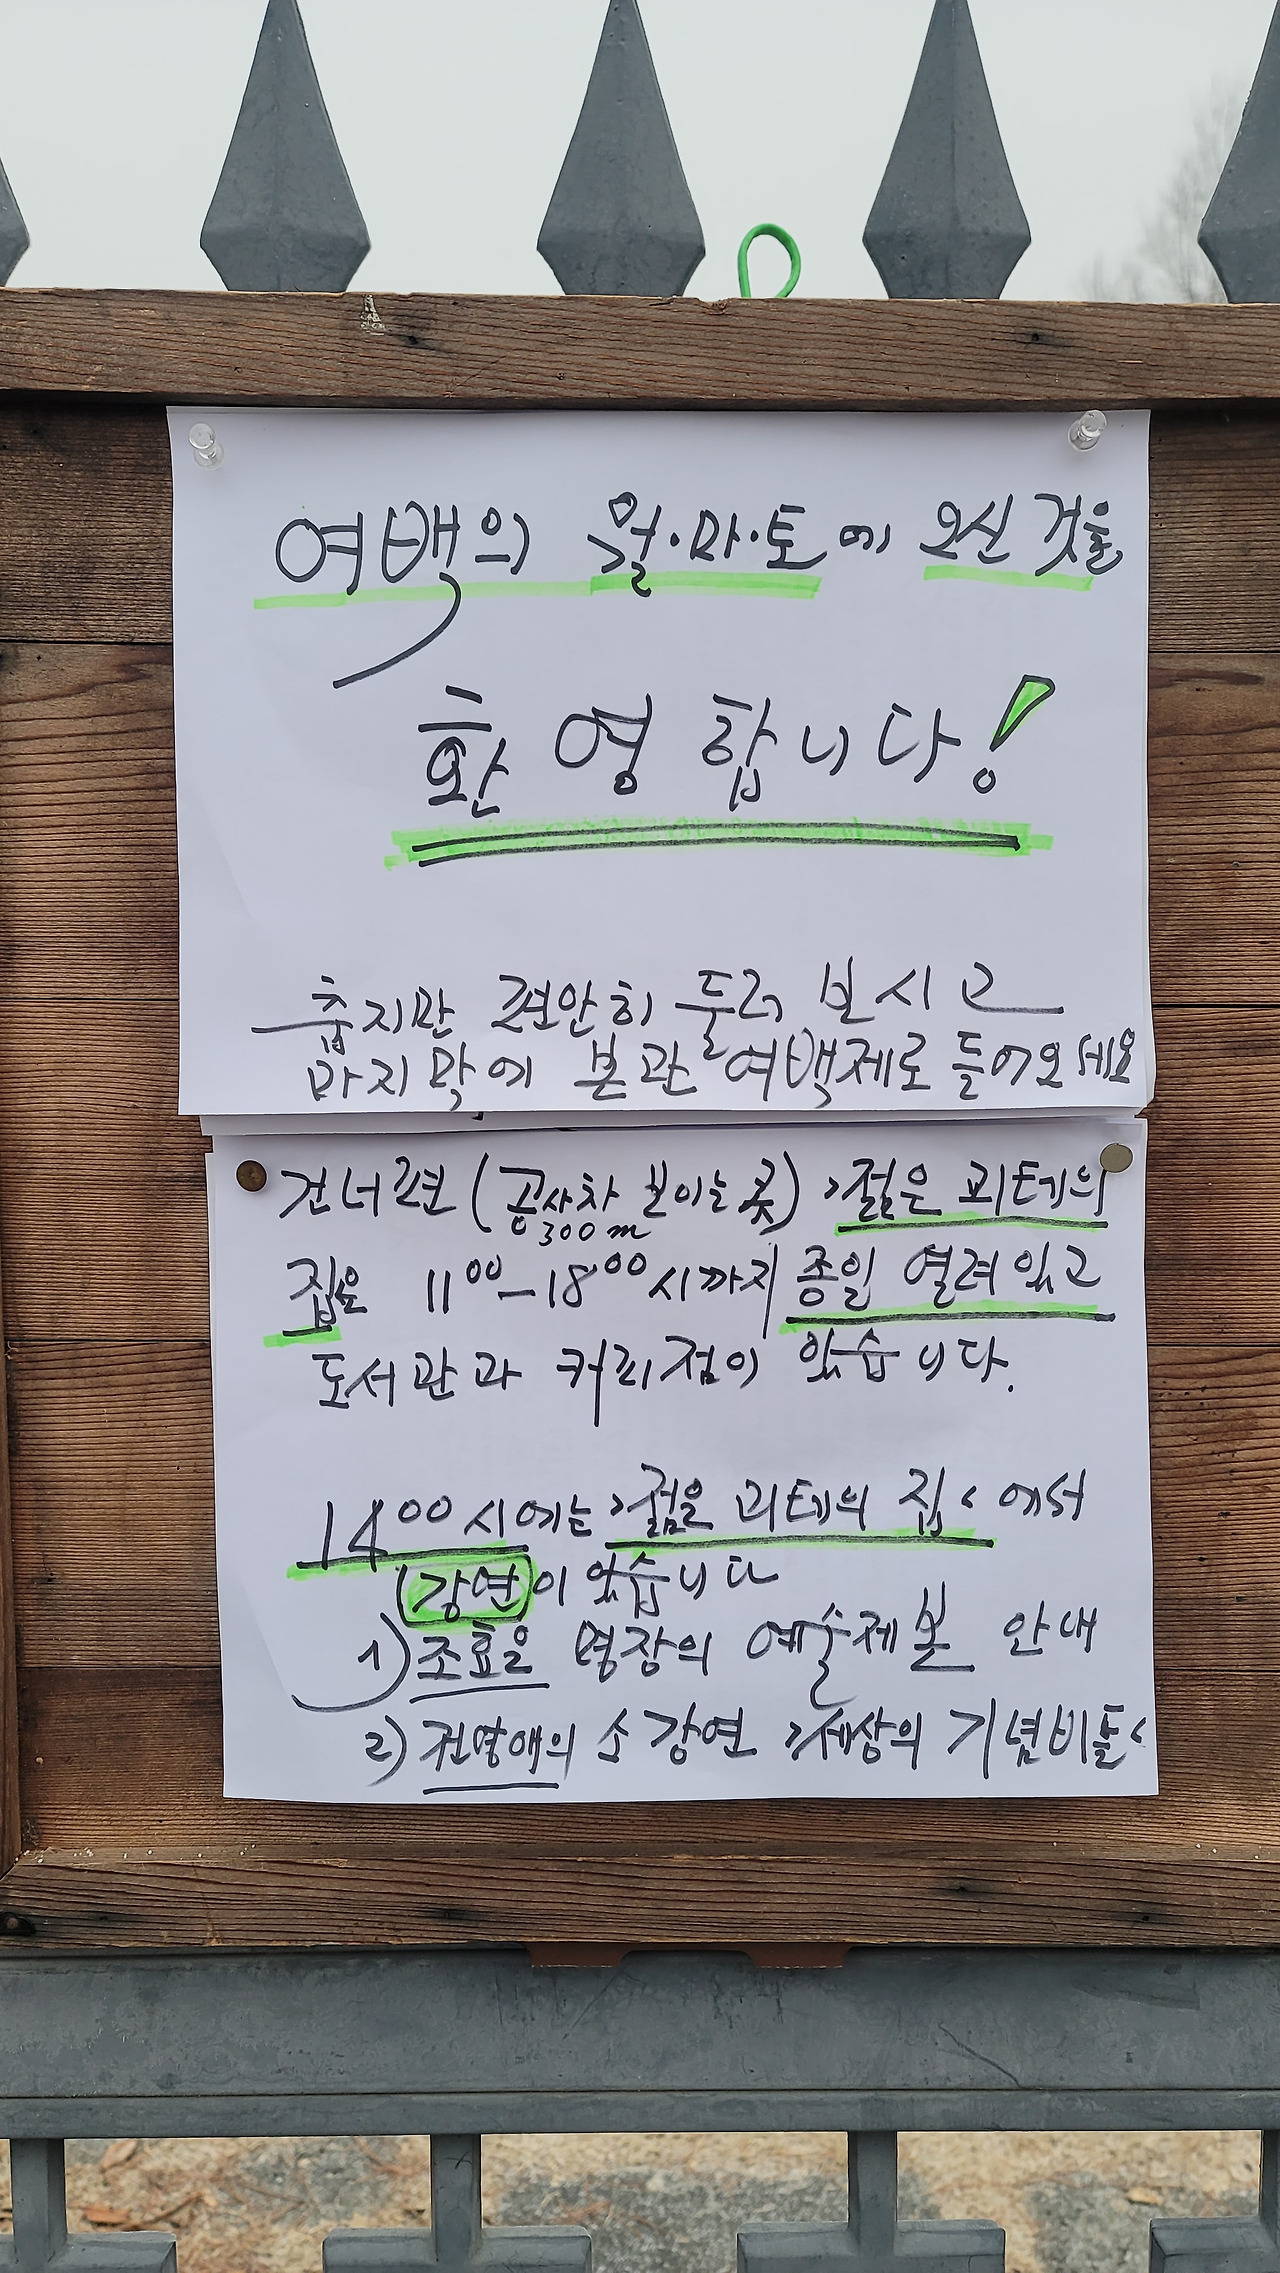 여백의 월·마·토에 오신 것을
환영합니다!
춥지만 편안히 둘러 보시고
마지막에 본관 여백제로 들어오세요
건너편 (공사차 보이는 곳) >젊은 괴테의
300m
집은 11⁰⁰–18⁰⁰시까지 종일 열려있고
도서관과 커피점이 있습니다.
14⁰⁰시에는 >젊은 괴테의 집<에서
강연이 있습니다
1) 조효은 명장의 예술제본 안내
2) 전영애의 소강연 >세상의 기념비들<